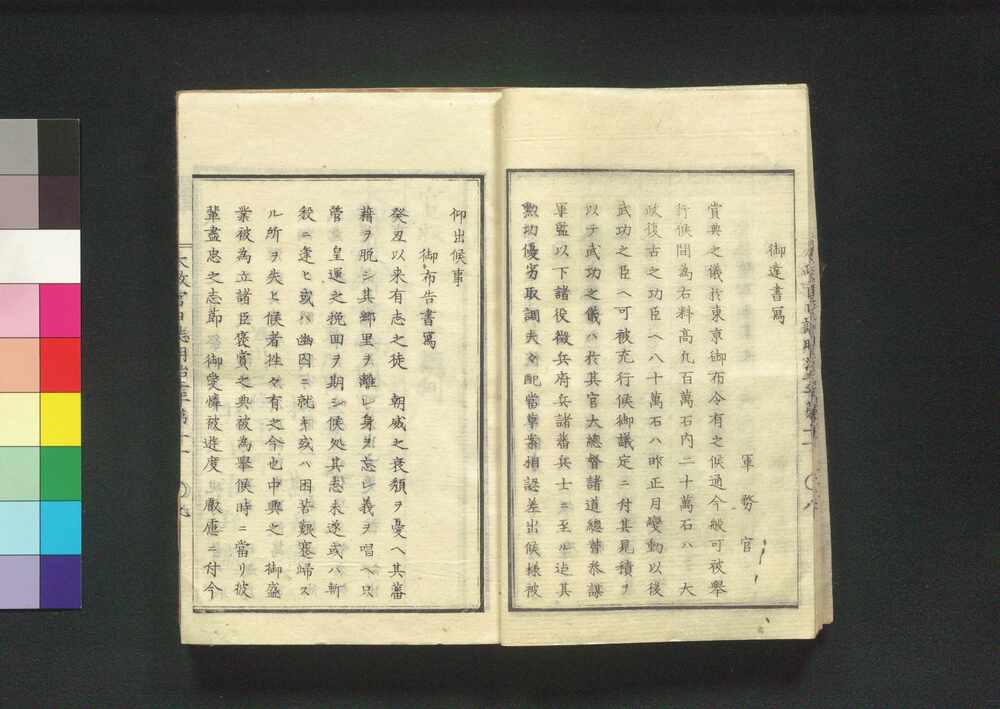 御達書寫
軍務官
賞典之儀於東京御布令有之候通今般可被擧
行候間為右料高九百萬石内二十萬石ハ　大
政復古之功臣ヘ八十萬石ハ昨正月變動以後
武功之臣ヘ可被充行候御議定ニ付其見積ヲ
以テ武功之儀ハ於其官大總督諸道總督參謀
軍監以下諸役徴兵府兵諸藩兵士ニ至ル迠其
勲功優劣取調夫々配當草案相認差出候様被
仰出候事
御布告書寫
癸丑以来有志之徒　朝威之衰頽ヲ憂ヘ其藩
籍ヲ脱シ其郷里ヲ離レ身ヲ忘レ義ヲ唱ヘ只
管　皇運之挽回ヲ期シ候処其志未遂或ハ斬
殺ニ逢ヒ或ハ幽囚ニ就キ或ハ困苦艱窶歸ス
ル所ヲ失ヒ候者往々有之今也中興之　御盛
業被為立諸臣褒賞之典被為擧候時ニ當リ彼
輩盡忠之志節　御愛憐被遊度　叡慮ニ付今